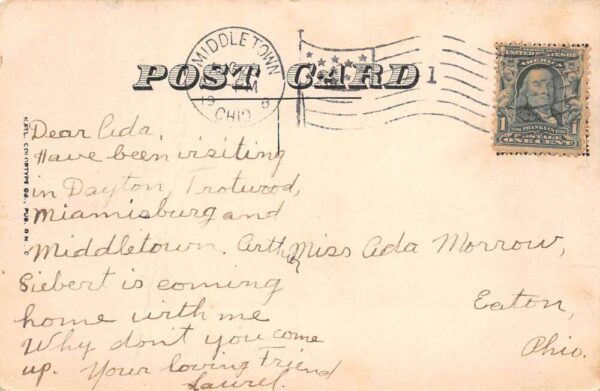 MIDDLETOWN
OHIO
POST CARD
1
UNITED STATES OF
AMERICA
1 FRANKLIN 1
POSTAGE
ONE CENT
Dear Ada,
Have been visiting
in Dayton, Trotwood,
Miamisburg and
Middletown. Arthur
Siebert is coming
home with me
Why don't you come
up. Your loving Friend
Laurel.
Miss Ada Morrow,
Eaton,
Ohio.